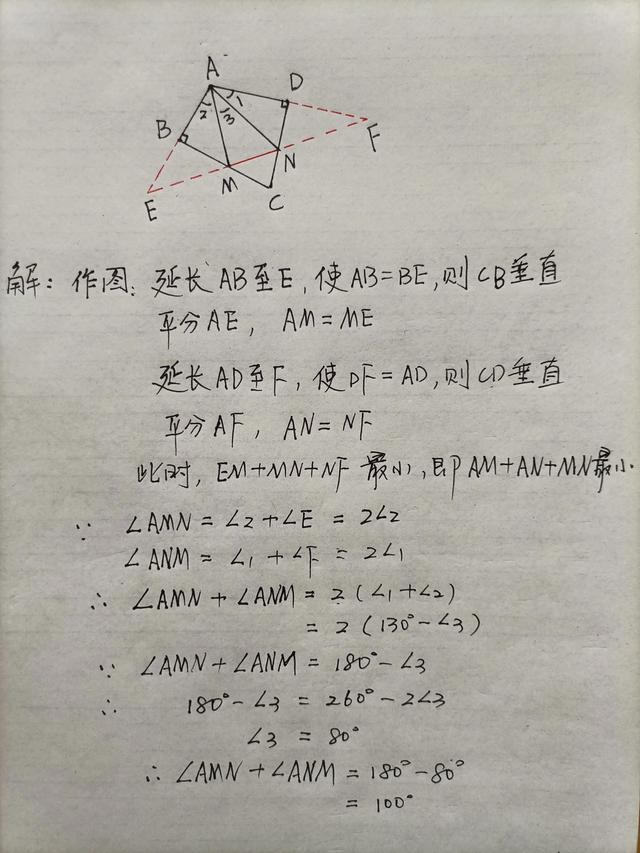 A
D
1
2
3
B
N
F
M
E
C
解：作图：延长AB至E，使AB=BE，则CB垂直
平分AE，AM=ME
延长AD至F，使DF=AD，则CD垂直
平分AF，AN=NF
此时，EM+MN+NF最小，即AM+AN+MN最小.
∵ ∠AMN=∠2+∠E=2∠2
∠ANM=∠1+∠F=2∠1
∴ ∠AMN+∠ANM=2(∠1+∠2)
=2(130°-∠3)
∵ ∠AMN+∠ANM=180°-∠3
∴ 180°-∠3=260°-2∠3
∠3=80°
∴ ∠AMN+∠ANM=180°-80°
=100°